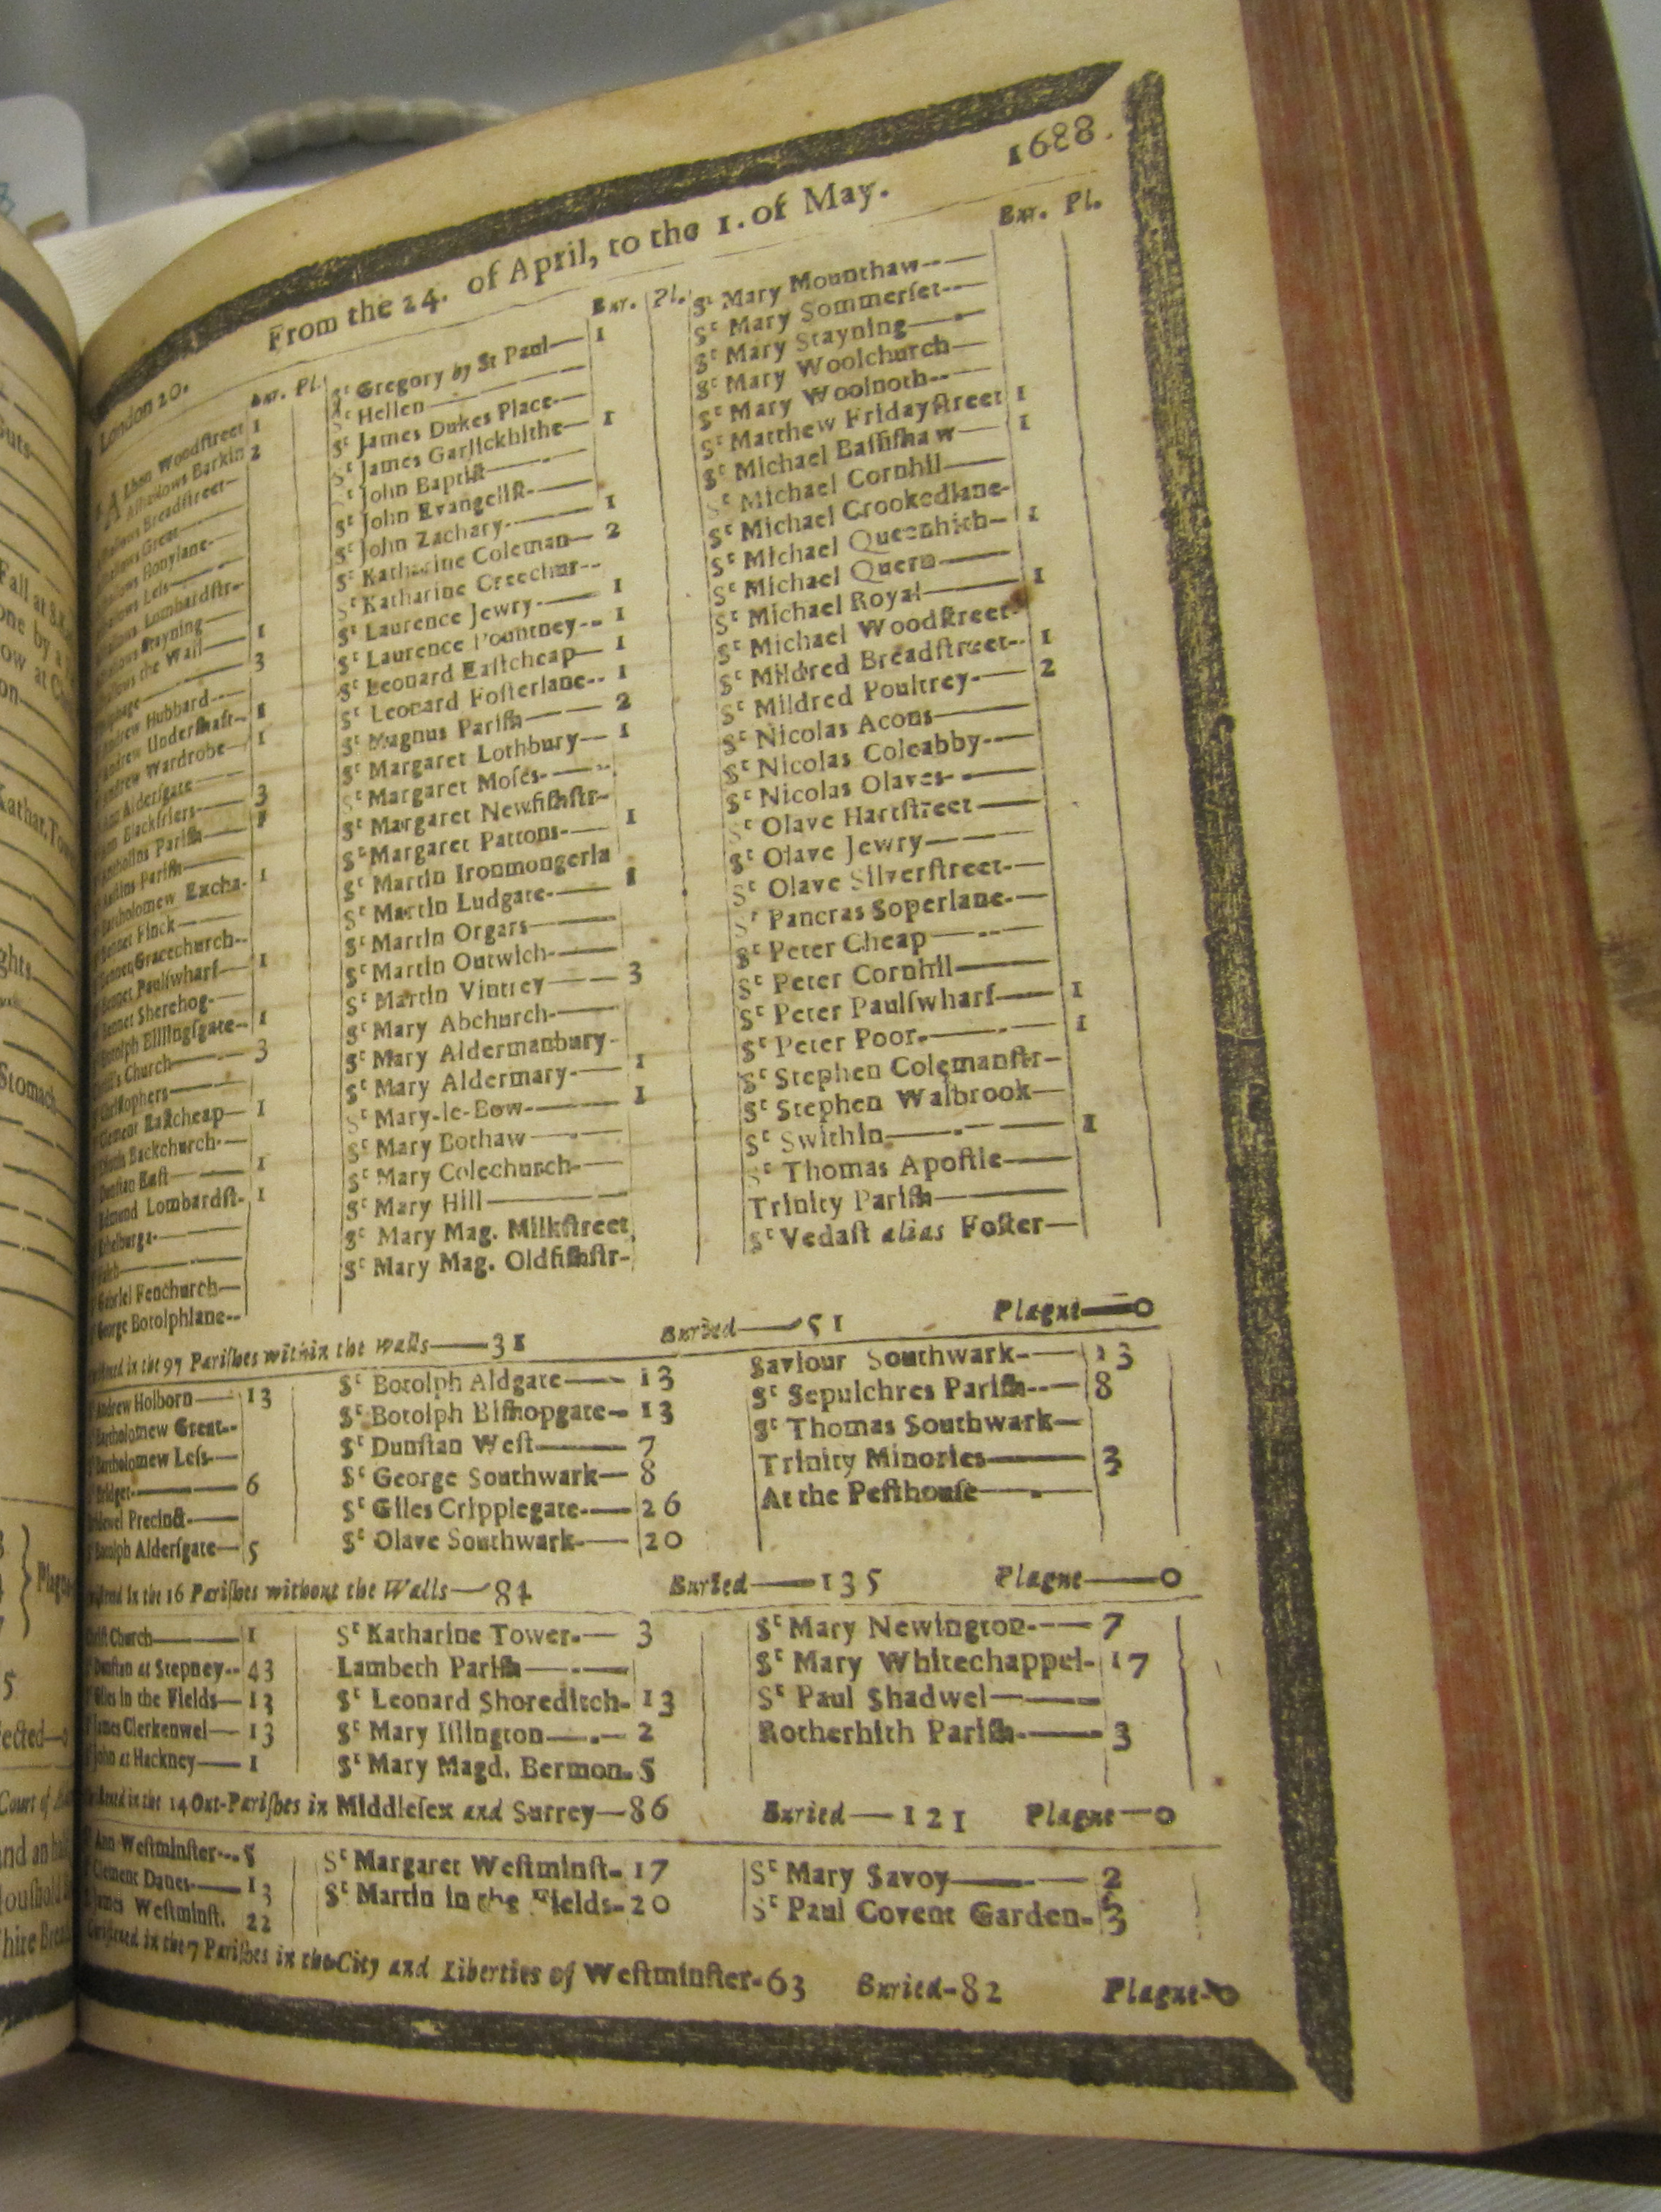 London 20.
From the 24. of April, to the 1. of May.
1688.
Bur. Pl.
A Lban Woodſtreet 1
Alhallows Barkin 2
Breadſtreet-
Great
Honylane-
Leſs
Lombardſtr-
Stayning
the Wall 1
3
Andrew Hubbard
Andrew Underſhaft- 1
Andrew Wardrobe- 1
Alderſgate
Blackfriers 3
Pariſh 1
Pariſh
Bartholomew Excha- 1
Bennet Finck
Bennet Gracechurch--
Bennet Paulſwharf 1
Bennet Sherehog-
Botolph Billingſgate- 1
Church 3
Chriſtophers
Clement Eaſtcheap 1
Backchurch-
Dunſtan Eaſt 1
Edmund Lombardſt- 1
Ethelburga-
Gabriel Fenchurch
George Botolphlane--
Bur. Pl.
Sᵗ Gregory by St Paul 1
Sᵗ Hellen
Sᵗ James Dukes Place
Sᵗ James Garlickhithe 1
Sᵗ John Baptiſt
Sᵗ John Evangeliſt
Sᵗ John Zachary 1
Sᵗ Katharine Coleman 2
Sᵗ Katharine Creechur--
Sᵗ Laurence Jewry 1
Sᵗ Laurence Pountney 1
Sᵗ Leonard Eaſtcheap 1
Sᵗ Leonard Foſterlane 1
Sᵗ Magnus Pariſh 2
Sᵗ Margaret Lothbury 1
Sᵗ Margaret Moſes
Sᵗ Margaret Newfiſhſtr-
Sᵗ Margaret Pattons 1
Sᵗ Martin Ironmongerla
Sᵗ Martin Ludgate 1
Sᵗ Martin Orgars
Sᵗ Martin Outwich
Sᵗ Martin Vintrey 3
Sᵗ Mary Abchurch
Sᵗ Mary Aldermanbury
Sᵗ Mary Aldermary 1
Sᵗ Mary-le-Bow 1
Sᵗ Mary Bothaw
Sᵗ Mary Colechurch
Sᵗ Mary Hill
Sᵗ Mary Mag. Milkſtreet
Sᵗ Mary Mag. Oldfiſhſtr-
Bur. Pl.
Sᵗ Mary Mounthaw
Sᵗ Mary Sommerſet
Sᵗ Mary Stayning
Sᵗ Mary Woolchurch
Sᵗ Mary Woolnoth
Sᵗ Matthew Fridayſtreet 1
Sᵗ Michael Baſſiſhaw 1
Sᵗ Michael Cornhil
Sᵗ Michael Crookedlane-
Sᵗ Michael Queenhith 1
Sᵗ Michael Quern
Sᵗ Michael Royal 1
Sᵗ Michael Woodſtreet
Sᵗ Mildred Breadſtreet 1
Sᵗ Mildred Poultrey 2
Sᵗ Nicolas Acons
Sᵗ Nicolas Coleabby
Sᵗ Nicolas Olaves
Sᵗ Olave Hartſtreet
Sᵗ Olave Jewry
Sᵗ Olave Silverſtreet
Sᵗ Pancras Soperlane
Sᵗ Peter Cheap
Sᵗ Peter Cornhil
Sᵗ Peter Paulſwharf 1
Sᵗ Peter Poor 1
Sᵗ Stephen Colemanſtr-
Sᵗ Stephen Walbrook
Sᵗ Swithin 1
Sᵗ Thomas Apoſtle
Trinity Pariſh
Sᵗ Vedaſt alias Foſter
in the 97 Pariſhes within the Walls—31 Buried—51 Plague—0
Andrew Holborn 13
Bartholomew Great--
Bartholomew Leſs-
Bridget 6
Precinct
Botolph Alderſgate 5
Sᵗ Botolph Aldgate 13
Sᵗ Botolph Biſhopgate 13
Sᵗ Dunſtan Weſt 7
Sᵗ George Southwark 8
Sᵗ Giles Cripplegate 26
Sᵗ Olave Southwark 20
Saviour Southwark 13
Sᵗ Sepulchres Pariſh 8
Sᵗ Thomas Southwark
Trinity Minories 3
At the Peſthouſe
in the 16 Pariſhes without the Walls—84 Buried—135 Plague—0
Church 1
Dunſtan at Stepney 43
Giles in the Fields 13
James Clerkenwel 13
John at Hackney 1
Sᵗ Katharine Tower 3
Lambeth Pariſh
Sᵗ Leonard Shoreditch 13
Sᵗ Mary Iſlington 2
Sᵗ Mary Magd. Bermon. 5
Sᵗ Mary Newington 7
Sᵗ Mary Whitechappel 17
Sᵗ Paul Shadwel
Rotherhith Pariſh 3
in the 14 Out-Pariſhes in Middleſex and Surrey—86 Buried—121 Plague—0
Ann Weſtminſter
Clement Danes 13
James Weſtminſt. 22
Sᵗ Margaret Weſtminſt- 17
Sᵗ Martin in the Fields 20
Sᵗ Mary Savoy 2
Sᵗ Paul Covent Garden 3
in the 7 Pariſhes in the City and Liberties of Weſtminſter-63 Buried-82 Plague-0